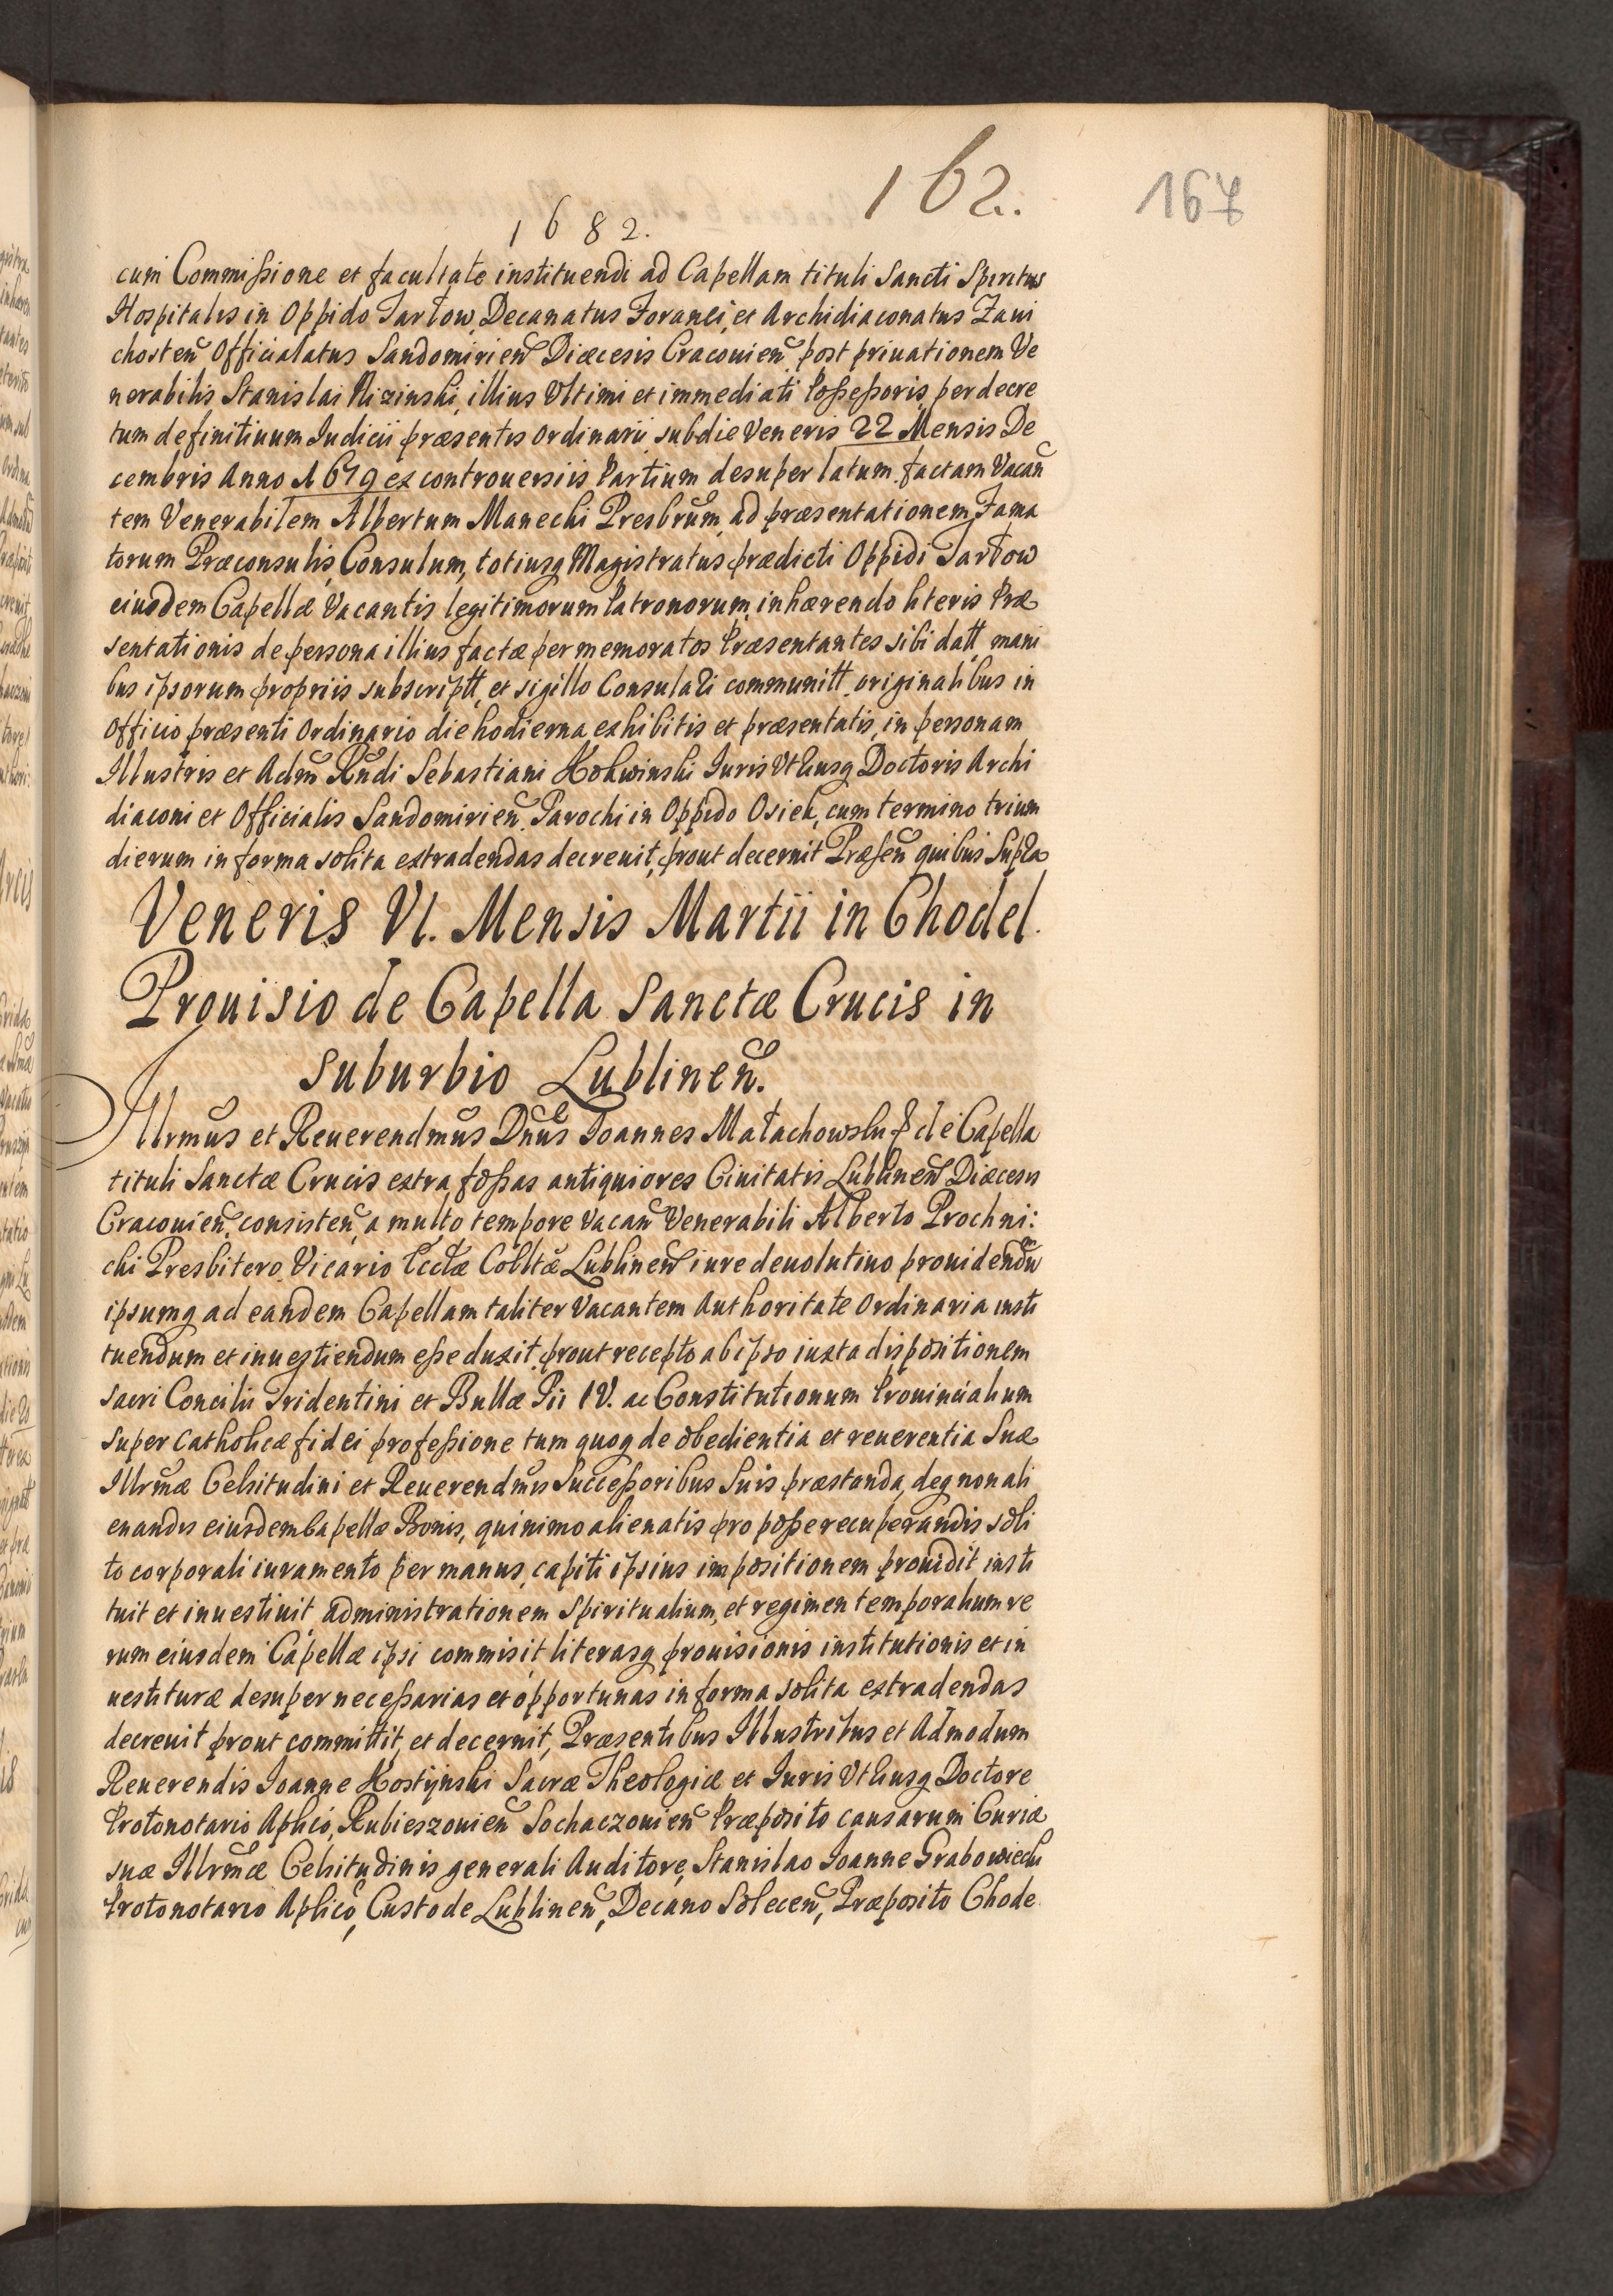 162.
167
1682.
cum Commißione et facultate instituendi ad Capellam tituli Sancti Spiritus
Hospitalis in Oppido Tarłow, Decanatus Foranei, et Archidiaconatus Zaui
chosten̄ Officialatus Sandomirien̄ Diæcesis Cracouien̄ post priuationem Ve
nerabilis Stanislai Nizinski, illius Vltimi et immediati Poßeßoris, per decre
tum definitiuum Iudicii præsentis Ordinarii sub die Veneris 22 Mensis De
cembris Anno 1679 ex controuersiis Partium desuper latum, factam Vacan̄
tem Venerabilem Albertum Manecki Presbrum̄, ad præsentationem Fama
torum Præconsulis, Consulum, totiusq Magistratus prædicti Oppidi Tarłow
eiusdem Capellæ Vacantis legitimorum Patronorum, inhærendo literis Præ
sentationis de persona illius factæ per memoratos Præsentantes sibi datt, mani
bus ipsorum propriis subscriptt, et sigillo Consulari communitt, originalibus in
Officio præsenti Ordinario die hodierna exhibitis et præsentatis, in personam
Illustris et Adm̄ Rn̄di Sebastiani Kokwinski Iuris Vtriusq Doctoris Archi
diaconi et Officialis Sandomirien̄, Parochi in Oppido Osiek, cum termino trium
dierum in forma solita extradendas decreuit, prout decernit Præsen̄ quibus Supra
Veneris VI. Mensis Martii in Chodel.
Prouisio de Capella Sanctæ Crucis in
suburbio Lublinen̄.
Illrmus̄ et Reuerendmus̄ Dnus̄ Ioannes Małachowski &c de Capella
tituli Sanctæ Crucis extra foßas antiquiores Ciuitatis Lublinen̄ Diæcesis
Cracouien̄, consisten̄, a multo tempore Vacan̄ Venerabili Alberto Prochni:
cki Presbitero Vicario Ecclæ Colltǣ Lublinen̄ iure deuolutiuo prouidendū
ipsumq ad eandem Capellam taliter Vacantem Authoritate Ordinaria insti
tuendum et inuestiendum eße duxit, prout recepto ab ipso iuxta dispositionem
Sacri Concilii Tridentini et Bullæ Pii IV. ac Constitutionum Prouincialium
super Catholicæ fidei profeßione tum quoq de obedientia et reuerentia Suæ
Illrmǣ Celsitudini et Reuerendmis̄ Succeßoribus Suis præstanda, deq non ali
enandis eiusdem Capellæ Bonis, quinimo alienatis pro poße recuperandis soli
to corporali iuramento per manus, capiti ipsius impositionem prouidit, insti
tuit et inuestiuit administrationem Spiritualium, et regimen temporalium re
rum eiusdem Capellæ ipsi commisit literasq prouisionis institutionis et in
uestituræ desuper neceßarias et opportunas in forma solita extradendas
decreuit prout committit, et decernit, Præsentibus Illustribus et Admodum
Reuerendis Ioanne Kostÿnski Sacræ Theologiæ et Iuris Vtriusq Doctore
Protonotario Aplico̅, Rubieszouien̄ Sochaczouien̄ Præposito causarum Curiæ
suæ Illrmǣ Celsitudinis generali Auditore, Stanislao Ioanne Grabowiecki
Protonotario Aplico̅, Custode Lublinen̄, Decano Solecen̄, Præposito Chode